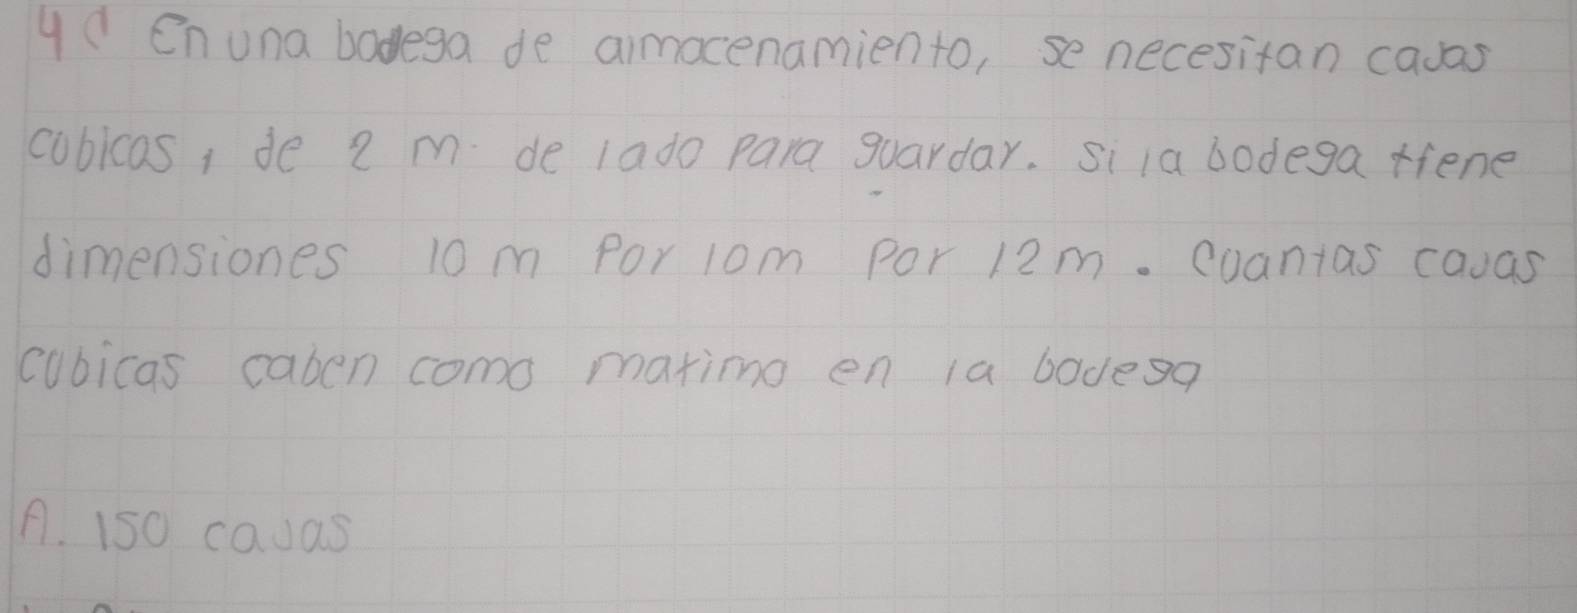 4 En una bodega de almacenamiento, se necesitan cajas
cubicas, de 2 m. de lado para guardar. si la bodega tiene
dimensiones 10 m Por 10m Por 12m. Cuantas cajas
cubicas caben como maximo en la bodega
A. 150 cajas